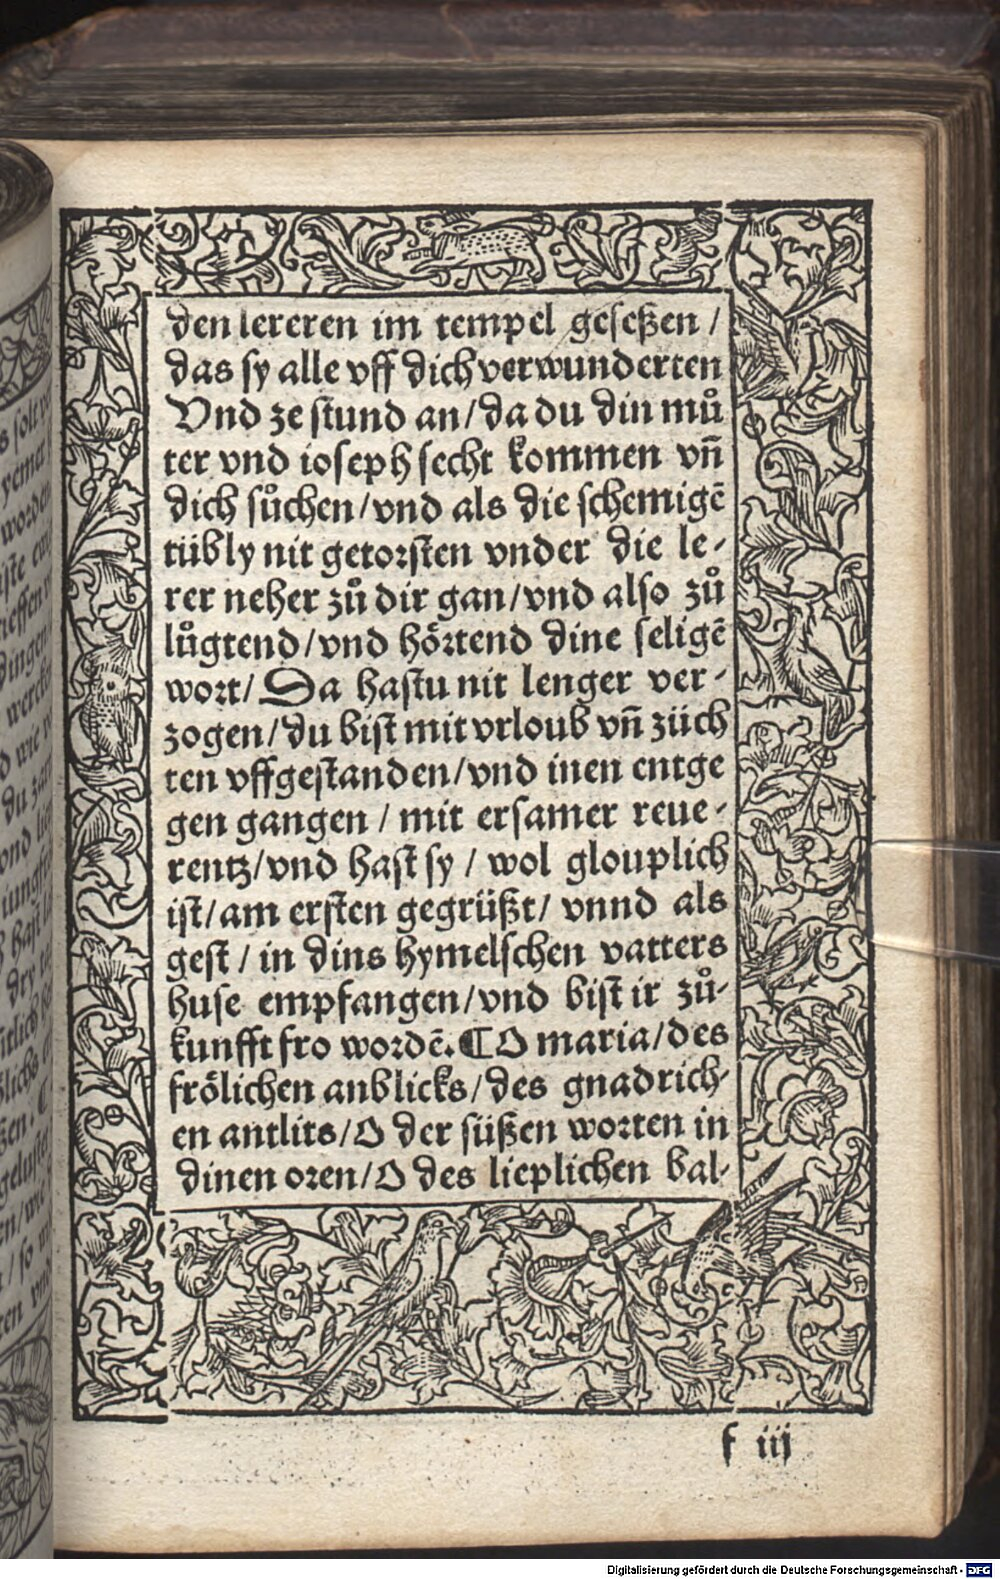 den lereren im tempel geseßen /
das sy alle vff dich verwunderten
Vnd ze stund an / da du din mů
ter vnd ioseph secht kommen vñ
dich sůchen / vnd als die schemigē
tübly nit getorsten vnder die le-
rer neher zů dir gan / vnd also zů
lůgtend / vnd hoͤrtend dine seligē
wort / Da hastu nit lenger ver-
zogen / du bist mit vrloub vñ züch
ten vffgestanden / vnd inen entge
gen gangen / mit ersamer reue-
rentz / vnd hast sy / wol glouplich
ist / am ersten gegrüßt / vnnd als
gest / in dins hymelschen vatters
huse empfangen / vnd bist ir zů-
kunfft fro wordē. ¶ O maria / des
froͤlichen anblicks / des gnadrich-
en antlits / O der süßen worten in
dinen oren / O des lieplichen bal-
f iij
Digitalisierung gefördert durch die Deutsche Forschungsgemeinschaft - DFG